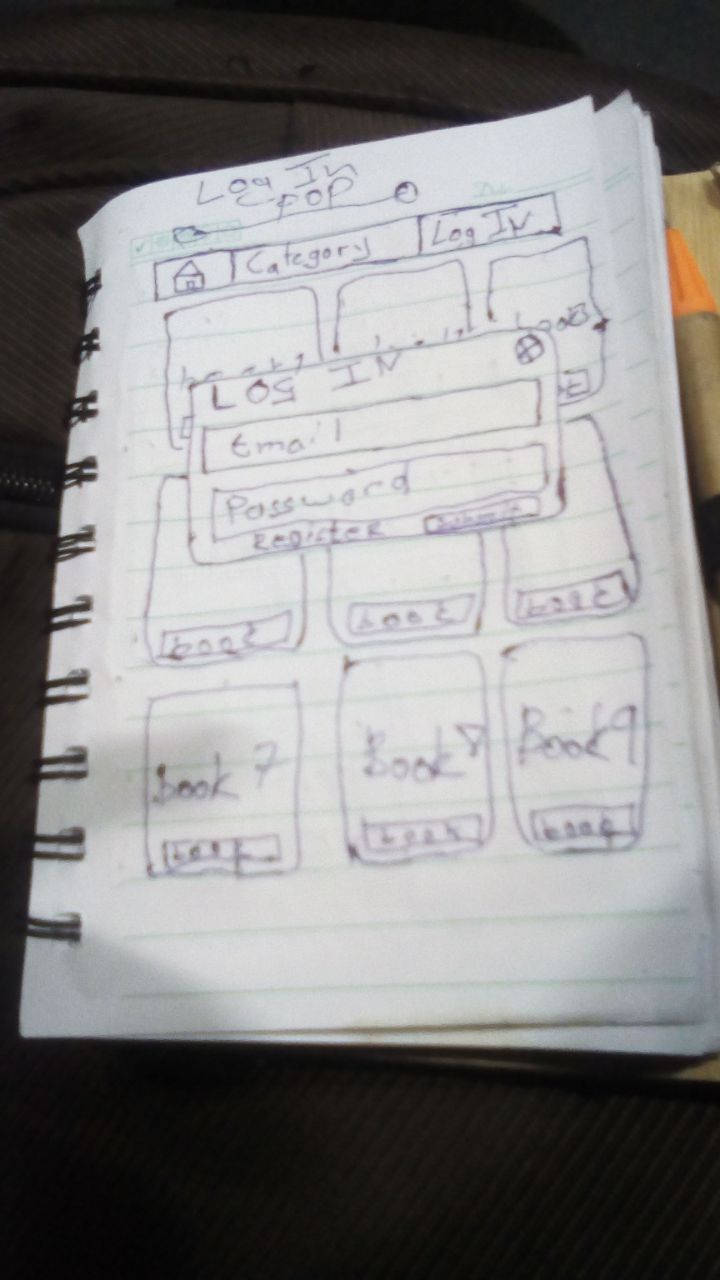 Log In
POP
Category Log IN
LOG IN
Email
Password
Register Submit
book book book
Book 7 Book 8 Book 9
book book book